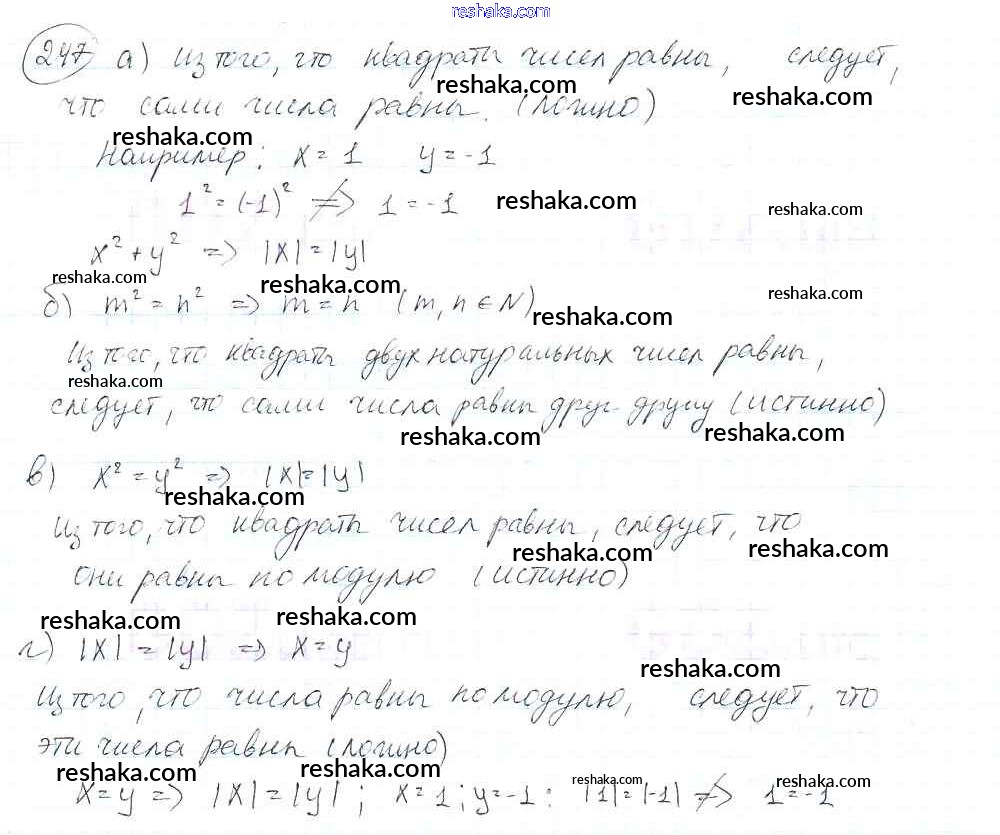 reshaka.com
247 а) Из того, что квадраты чисел равны, следует,
reshaka.com reshaka.com
что сами числа равны. (Ложно)
reshaka.com
Например: x = 1 y = -1
1² = (-1)² ≠> 1 = -1 reshaka.com reshaka.com
x² + y² => |x| = |y|
reshaka.com reshaka.com reshaka.com
б) m² = n² => m = n (m, n ∈ N)
reshaka.com
Из того, что квадраты двух натуральных чисел равны,
reshaka.com
следует, что сами числа равны друг другу (истинно)
reshaka.com reshaka.com
в) x² = y² => |x| = |y|
reshaka.com
Из того, что квадраты чисел равны, следует, что
reshaka.com reshaka.com
они равны по модулю (истинно)
reshaka.com reshaka.com
г) |x| = |y| => x = y
reshaka.com
Из того, что числа равны по модулю, следует, что
эти числа равны (ложно)
reshaka.com reshaka.com reshaka.com reshaka.com
x = y => |x| = |y|; x = 1; y = -1: |1| = |-1| ≠> 1 = -1